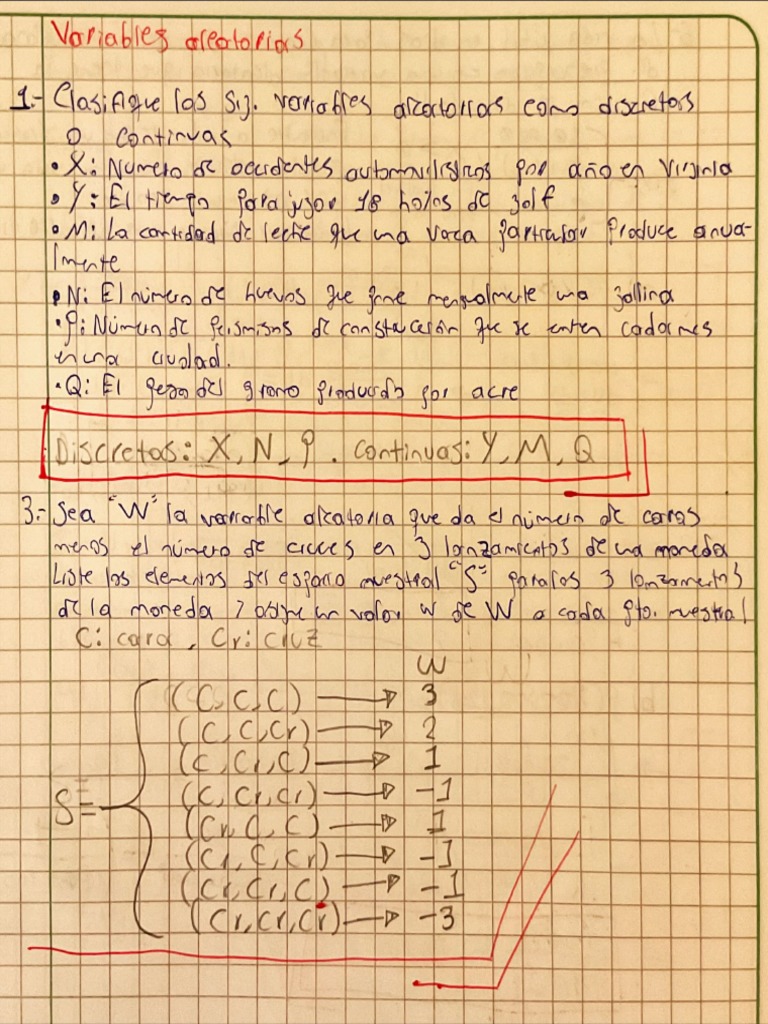 Variables aleatorias
1.- Clasifique las sig. variables aleatorias como discretas
o continuas
• X: Número de accidentes automovilísticos por año en Virginia
• Y: El tiempo para jugar 18 hoyos de golf
• M: La cantidad de leche que una vaca particular produce anua-
lmente
• N: El número de huevos que pone mensualmente una gallina
• P: Número de permisos de construcción que se emiten cada mes
en una ciudad.
• Q: El peso del grano producido por acre
Discretas: X, N, P. Continuas: Y, M, Q
3.- Sea "W" la variable aleatoria que da el número de caras
menos el número de cruces en 3 lanzamientos de una moneda
Liste los elementos del espacio muestral "S" para los 3 lanzamientos
de la moneda y asigne un valor w de W a cada pto. muestral
C: cara, Cr: cruz
W
(C, C, C) → 3
(C, C, Cr) → 2
(C, Cr, C) → 1
S = (C, Cr, Cr) → -1
(Cr, C, C) → 1
(Cr, C, Cr) → -1
(Cr, Cr, C) → -1
(Cr, Cr, Cr) → -3